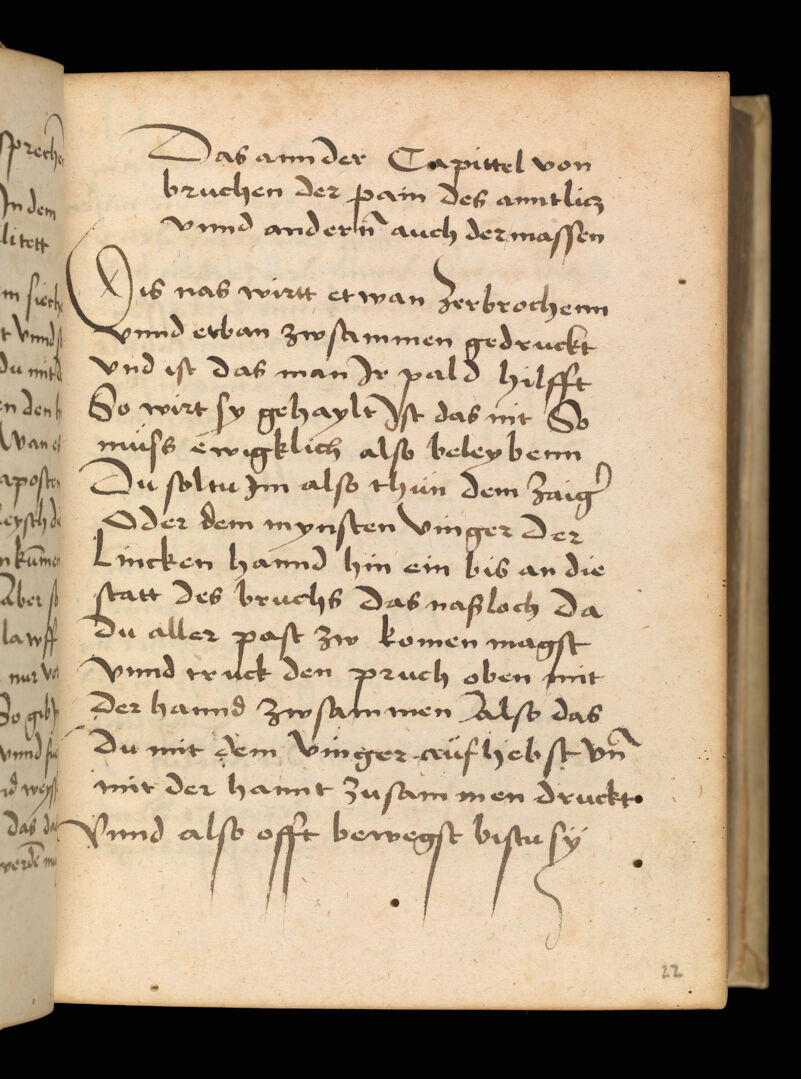 Das annder Capittel von
bruchen der pain des anntlicz
vnnd andern̄ auch dermassen
Dis nas wirtt etwan Zerbrochenn
vnnd etban zwsammen gedruckt
vnd ist das man Ir pald hilfft
So wirt sy gehaylt Ist das nit So
müss ewigklich also beleybenn
Du soltu Im also thün dem Zaigr̄
Oder dem mynsten vinger Der
Lincken hannd hin ein bis an die
statt des bruchs Das naßloch Da
du aller past zw komen magst
vnnd truck den pruch oben mit
der hannd zwsammen Also das
du mit dem vinger aüfhebst vn̄
mit der hannt Zusammen druckt
vnnd also offt bewegst bistu sÿ
22
sprechen
In dem
litett
t vnnd
Du mit
Wan
kumen
Aber so
lawff
nur vo
So gib
vnnd
das da